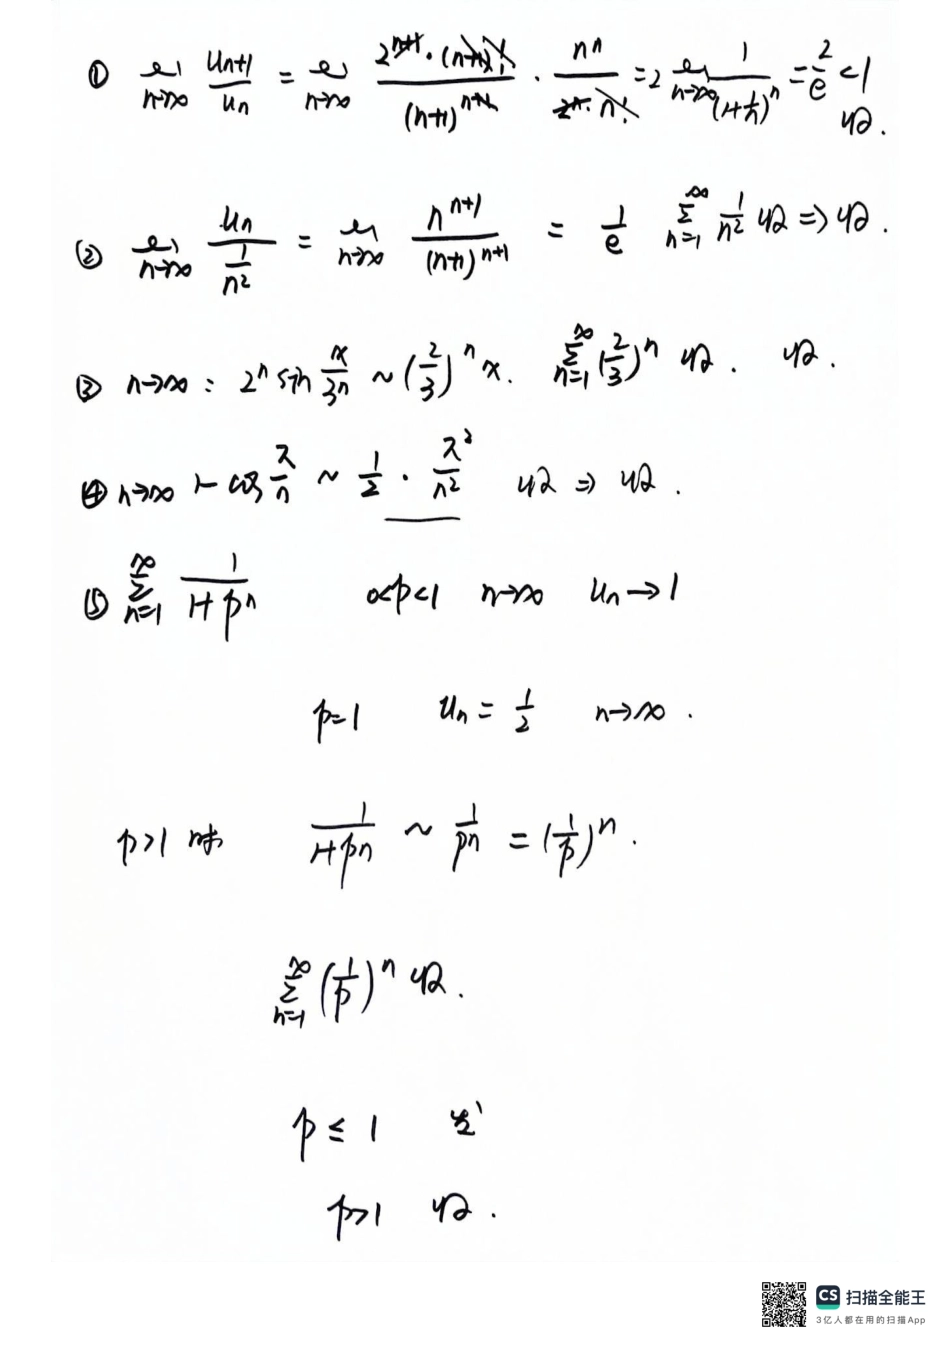 ① lim n→∞ u_{n+1}/u_n = lim n→∞ 2^{n+1}·(n+1)!/(n+1)^{n+1} · n^n/(2^n·n!) = 2 lim n→∞ 1/(1+1/n)^n = 2/e < 1 收.
② lim n→∞ u_n/(1/n²) = lim n→∞ n^{n+1}/(n+1)^{n+1} = 1/e ∑_{n=1}^{∞} 1/n² 收 ⇒ 收.
③ n→∞ : 2^n sin x/3^n ~ (2/3)^n x. ∑_{n=1}^{∞} (2/3)^n 收. 收.
④ n→∞ 1-cos π/n ~ 1/2 · π²/n² 收 ⇒ 收.
⑤ ∑_{n=1}^{∞} 1/(1+p^n) 0<p<1 n→∞ u_n→1
p=1 u_n = 1/2 n→∞ .
p>1 时 1/(1+p^n) ~ 1/p^n = (1/p)^n .
∑_{n=1}^{∞} (1/p)^n 收.
p ≤ 1 发
p>1 收.
CS 扫描全能王
3亿人都在用的扫描App